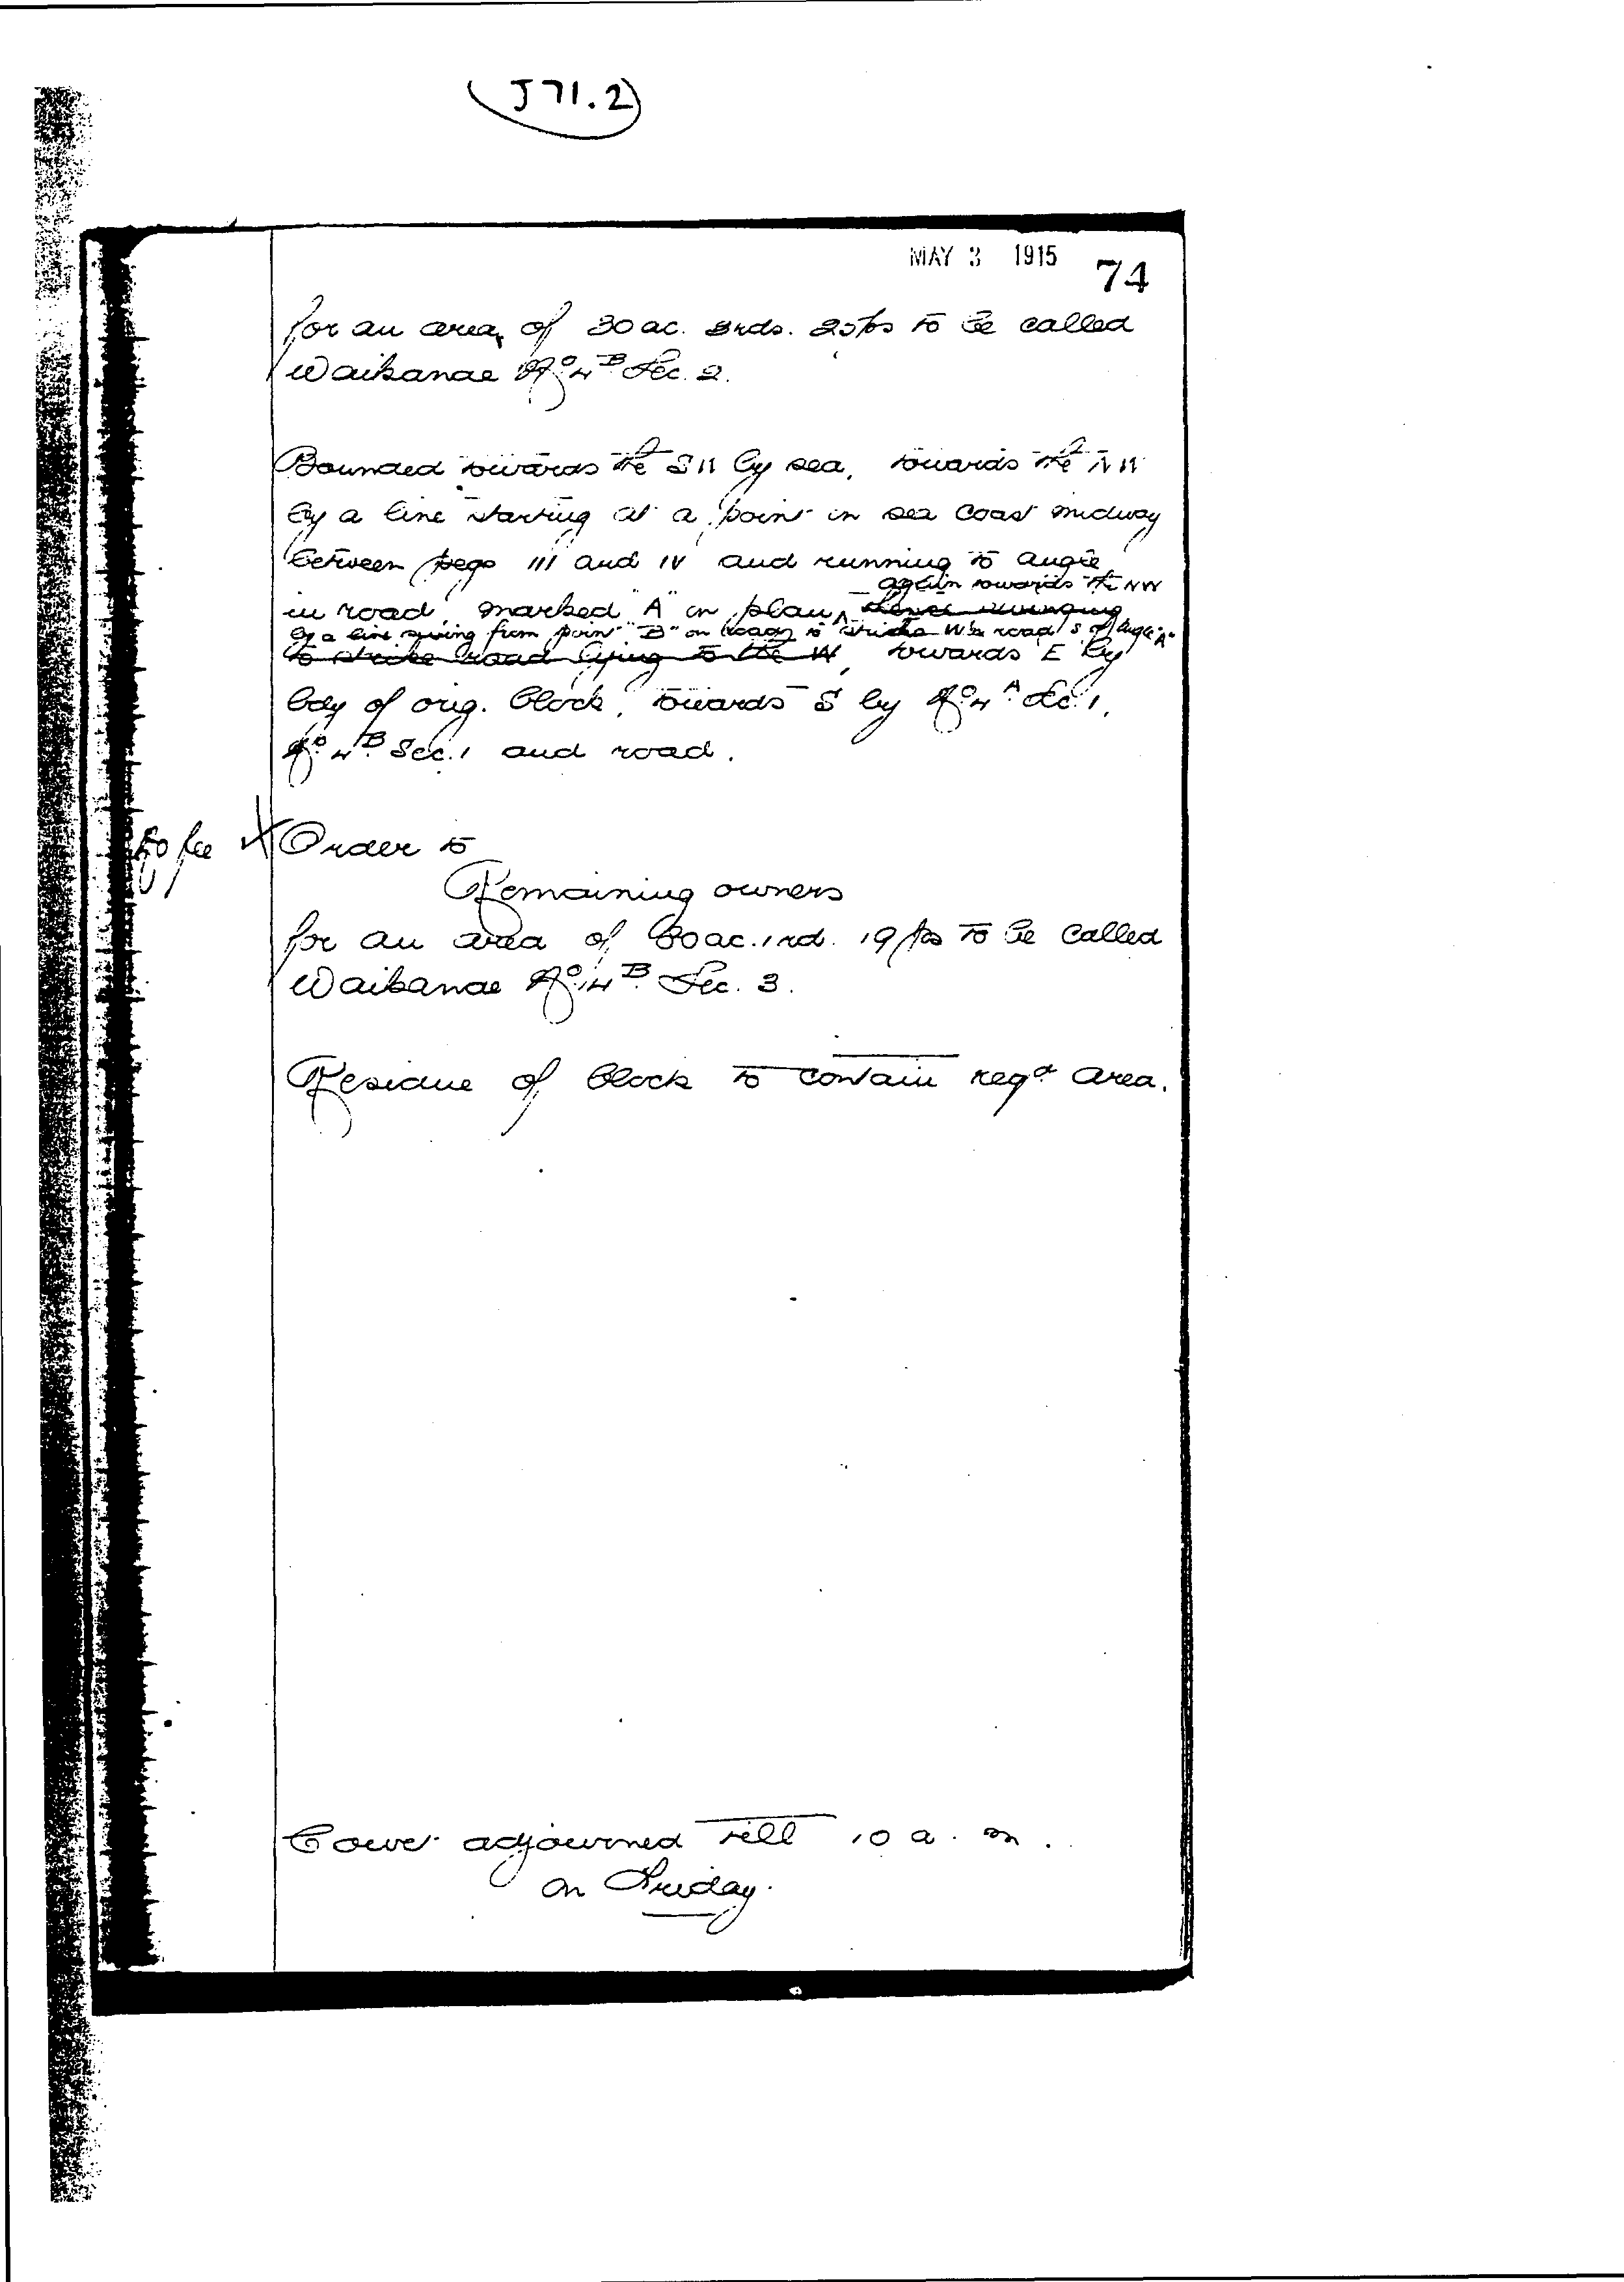 J 71.2
MAY 3 1915
74
for an area of 30 ac. 3 rds. 25 ps to be called
Waikanae No 4B Sec. 2.
Bounded towards the SW by sea, towards the NW
by a line starting at a point in sea coast midway
between pegs III and IV and running to angle
again towards the NW
in road, marked "A" on plan,
by a line from point "B" on road to strike W road S of Angle "A"
to strike road lying to the W, towards E by
bdy of orig. block, towards S by No 4A Sec. 1,
No 4B Sec. 1 and road.
No fee
Order to
Remaining owners
for an area of ac. 1 rd. 19 ps to be called
Waikanae No 4B Sec. 3.
Residue of block to contain reqd area.
Court adjourned till 10 a.m.
on Friday.